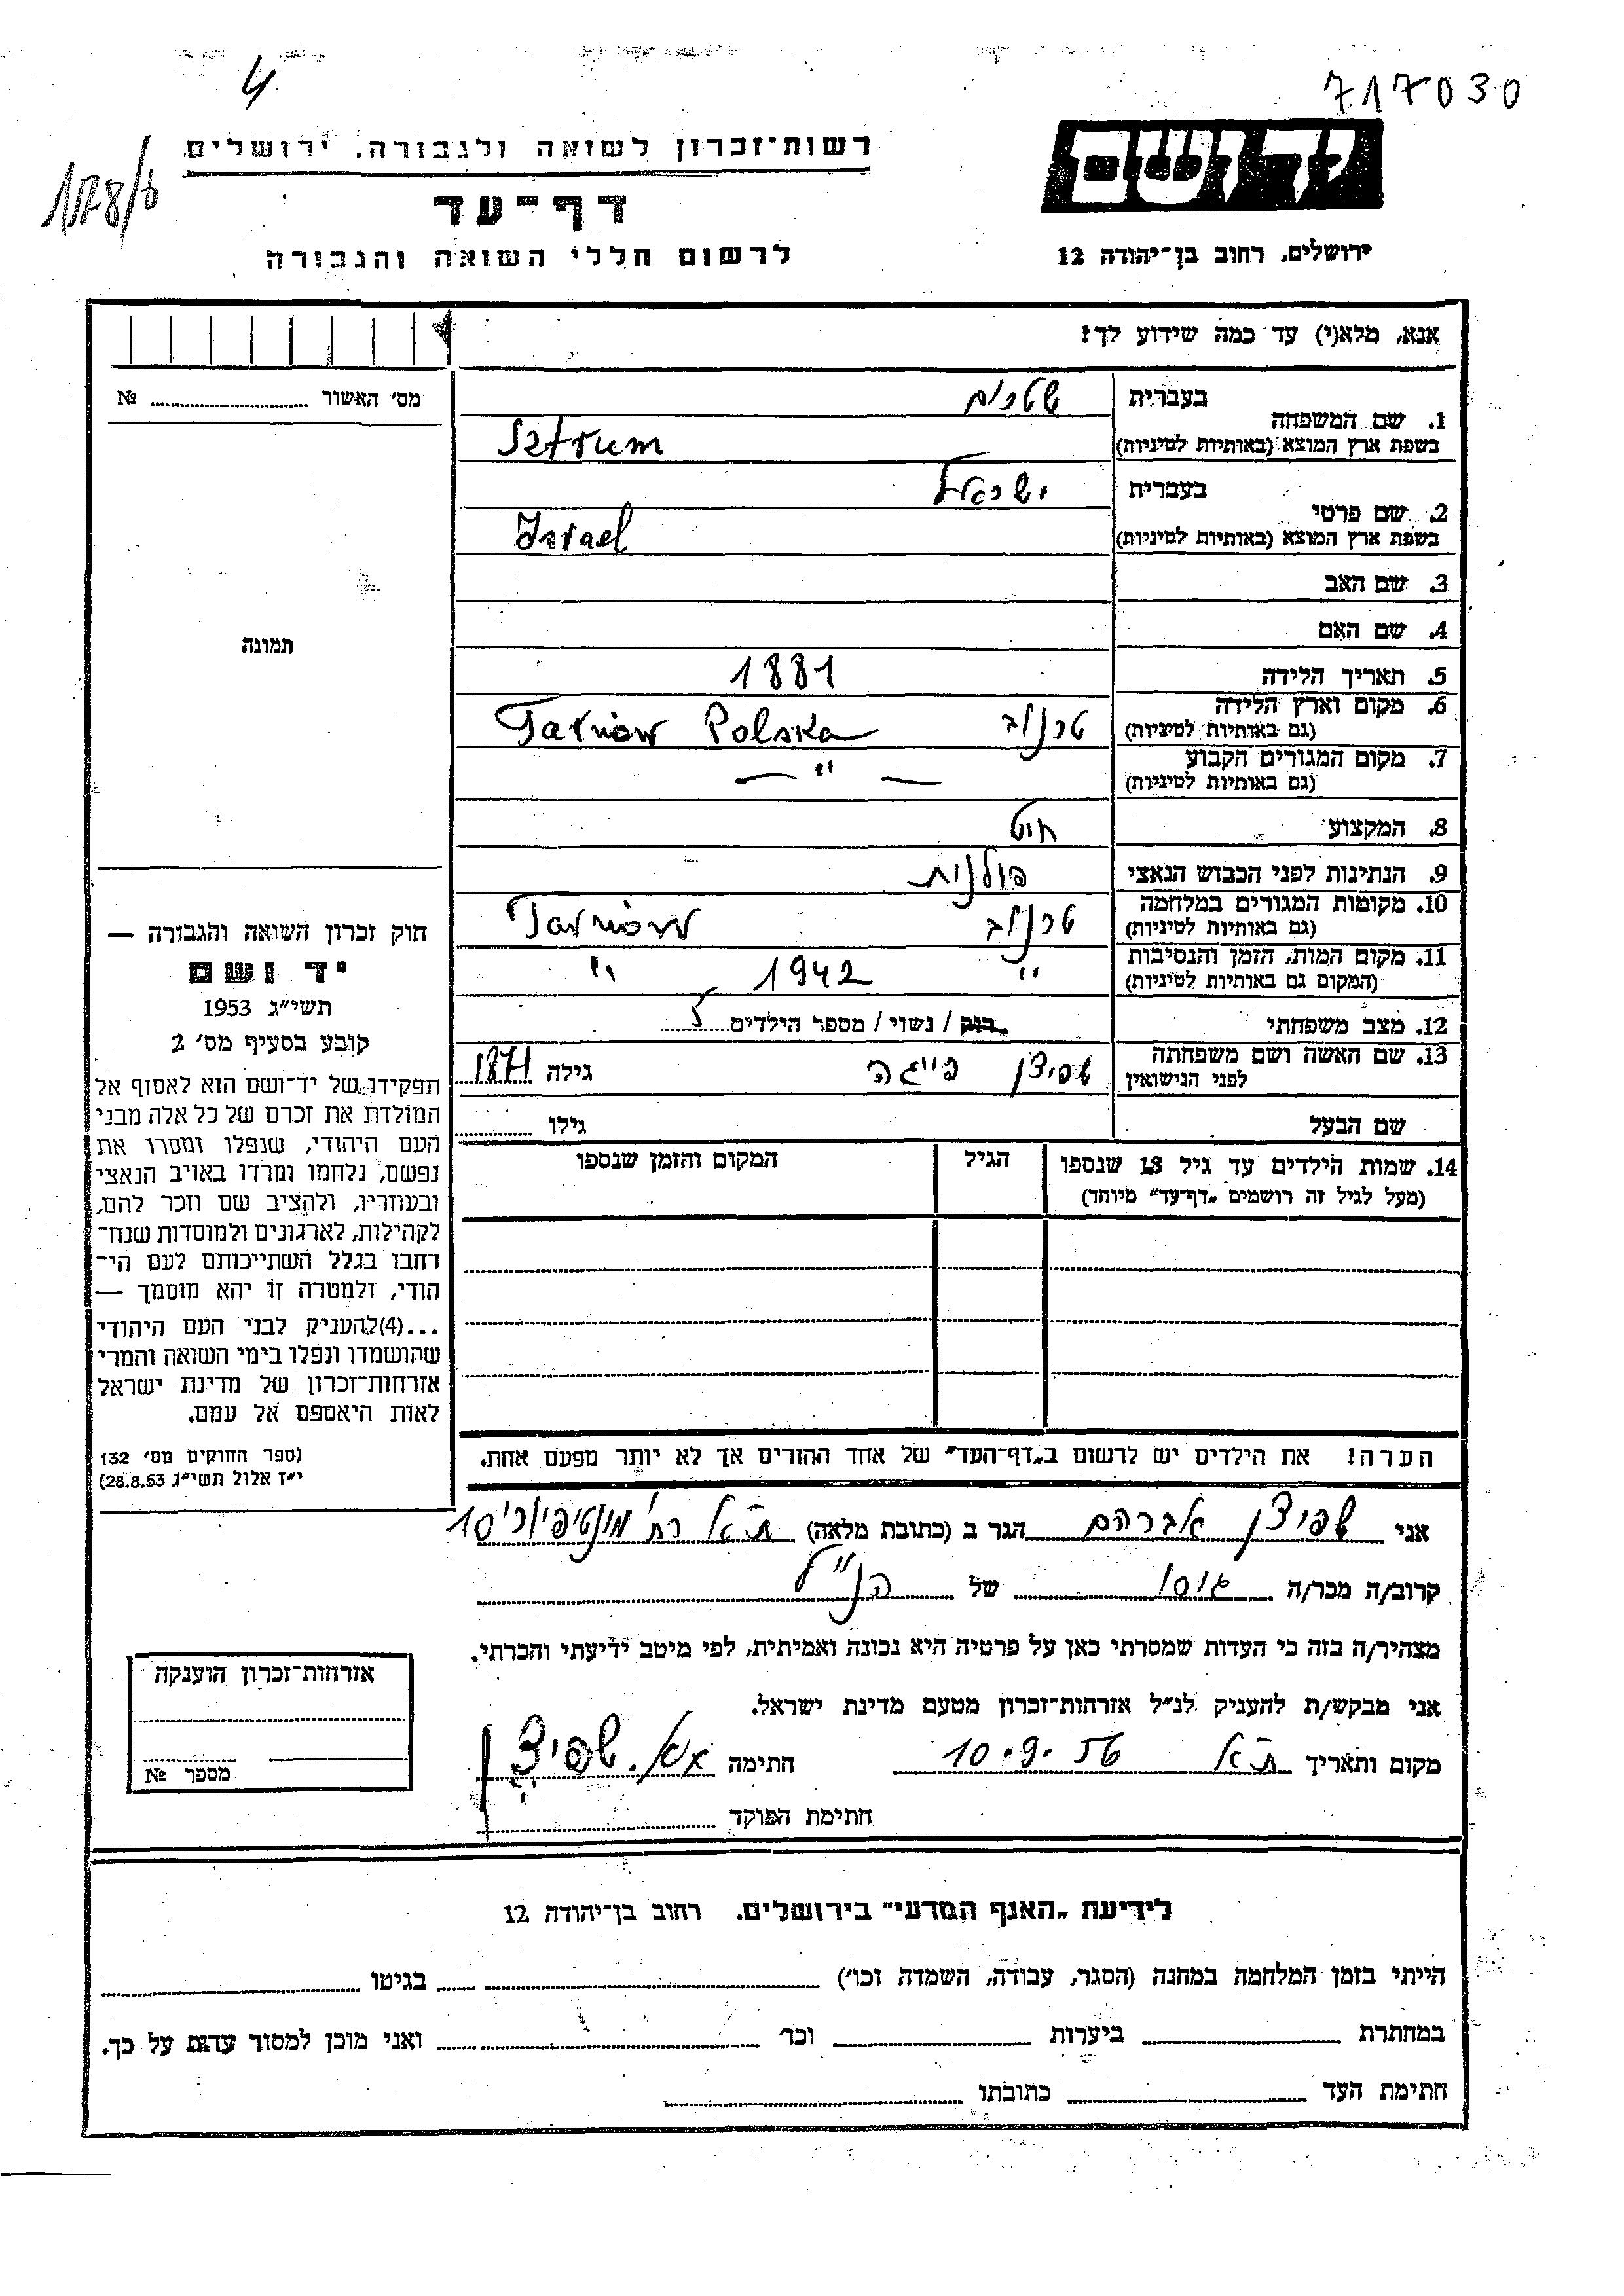 4
717030
178/ל
רשות־זכרון לשואה ולגבורה, ירושלים
יד ושם
דף־עד
לרשום חללי השואה והגבורה
ירושלים, רחוב בן־יהודה 12
אנא, מלא(י) עד כמה שידוע לך!
מס׳ האשור ........ №
1. שם המשפחה
בעברית שטרום
בשפת ארץ המוצא (באותיות לטיניות) Sztrum
2. שם פרטי
בעברית ישראל
בשפת ארץ המוצא (באותיות לטיניות) Israel
3. שם האב
4. שם האם
תמונה
5. תאריך הלידה 1881
6. מקום וארץ הלידה
(גם באותיות לטיניות) טרנוב Tarnów Polska
7. מקום המגורים הקבוע
(גם באותיות לטיניות) — ״ —
8. המקצוע
9. הנתינות לפני הכבוש הנאצי פולנית
10. מקומות המגורים במלחמה
(גם באותיות לטיניות) טרנוב Tarnów
11. מקום המות, הזמן והנסיבות
(המקום גם באותיות לטיניות) ״ 1942 ״
12. מצב משפחתי רוק / נשוי / מספר הילדים
13. שם האשה ושם משפחתה
לפני הנישואין שפיצן פייגה גילה 1871
שם הבעל גילו ........
14. שמות הילדים עד גיל 18 שנספו
(מעל לגיל זה רושמים „דף־עד״ מיוחד)
הגיל
המקום והזמן שנספו
חוק זכרון השואה והגבורה —
יד ושם
תשי״ג 1953
קובע בסעיף מס׳ 2
תפקידו של יד־ושם הוא לאסוף אל
המולדת את זכרם של כל אלה מבני
העם היהודי, שנפלו ומסרו את
נפשם, נלחמו ומרדו באויב הנאצי
ובעוזריו, ולהציב שם וזכר להם,
לקהילות, לארגונים ולמוסדות שנח־
רחבו בגלל השתייכותם לעם הי־
הודי, ולמטרה זו יהא מוסמך —
...(4)להעניק לבני העם היהודי
שהושמדו ונפלו בימי השואה והמרי
אזרחות־זכרון של מדינת ישראל
לאות היאספם אל עמם.
(ספר החוקים מס׳ 132
י״ז אלול תשי״ג 28.8.53)
הערה! את הילדים יש לרשום ב„דף־העד״ של אחד ההורים אך לא יותר מפעם אחת.
אני שפיצן אברהם הגר ב (כתובת מלאה) ת״א רח׳ מונטיפיורי 10
קרוב/ה מכר/ה גיסו של הנ״ל
מצהיר/ה בזה כי העדות שמסרתי כאן על פרטיה היא נכונה ואמיתית, לפי מיטב ידיעתי והכרתי.
אני מבקש/ת להעניק לנ״ל אזרחות־זכרון מטעם מדינת ישראל.
מקום ותאריך ת״א 10.9.56 חתימה אב. שפיצן
חתימת הפוקד
אזרחות־זכרון הוענקה
מספר №
לידיעת „האנף המדעי״ בירושלים. רחוב בן־יהודה 12
הייתי בזמן המלחמה במחנה (הסגר, עבודה, השמדה וכו׳) ........ בגיטו ........
במחתרת ........ ביערות ........ וכו׳ ........ ואני מוכן למסור עדות על כך.
חתימת העד ........ כתובתו ........